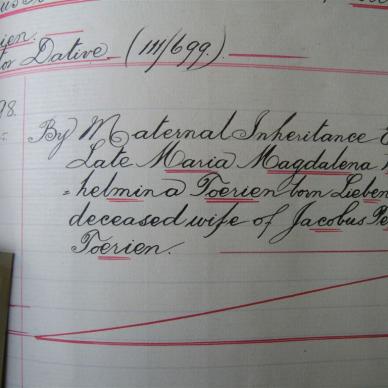 ien.
or Dative. (111/699.)
98.
By Maternal Inheritance
Late Maria Magdalena
=helmina Toerien born Lieben
deceased wife of Jacobus Pe
Toerien.